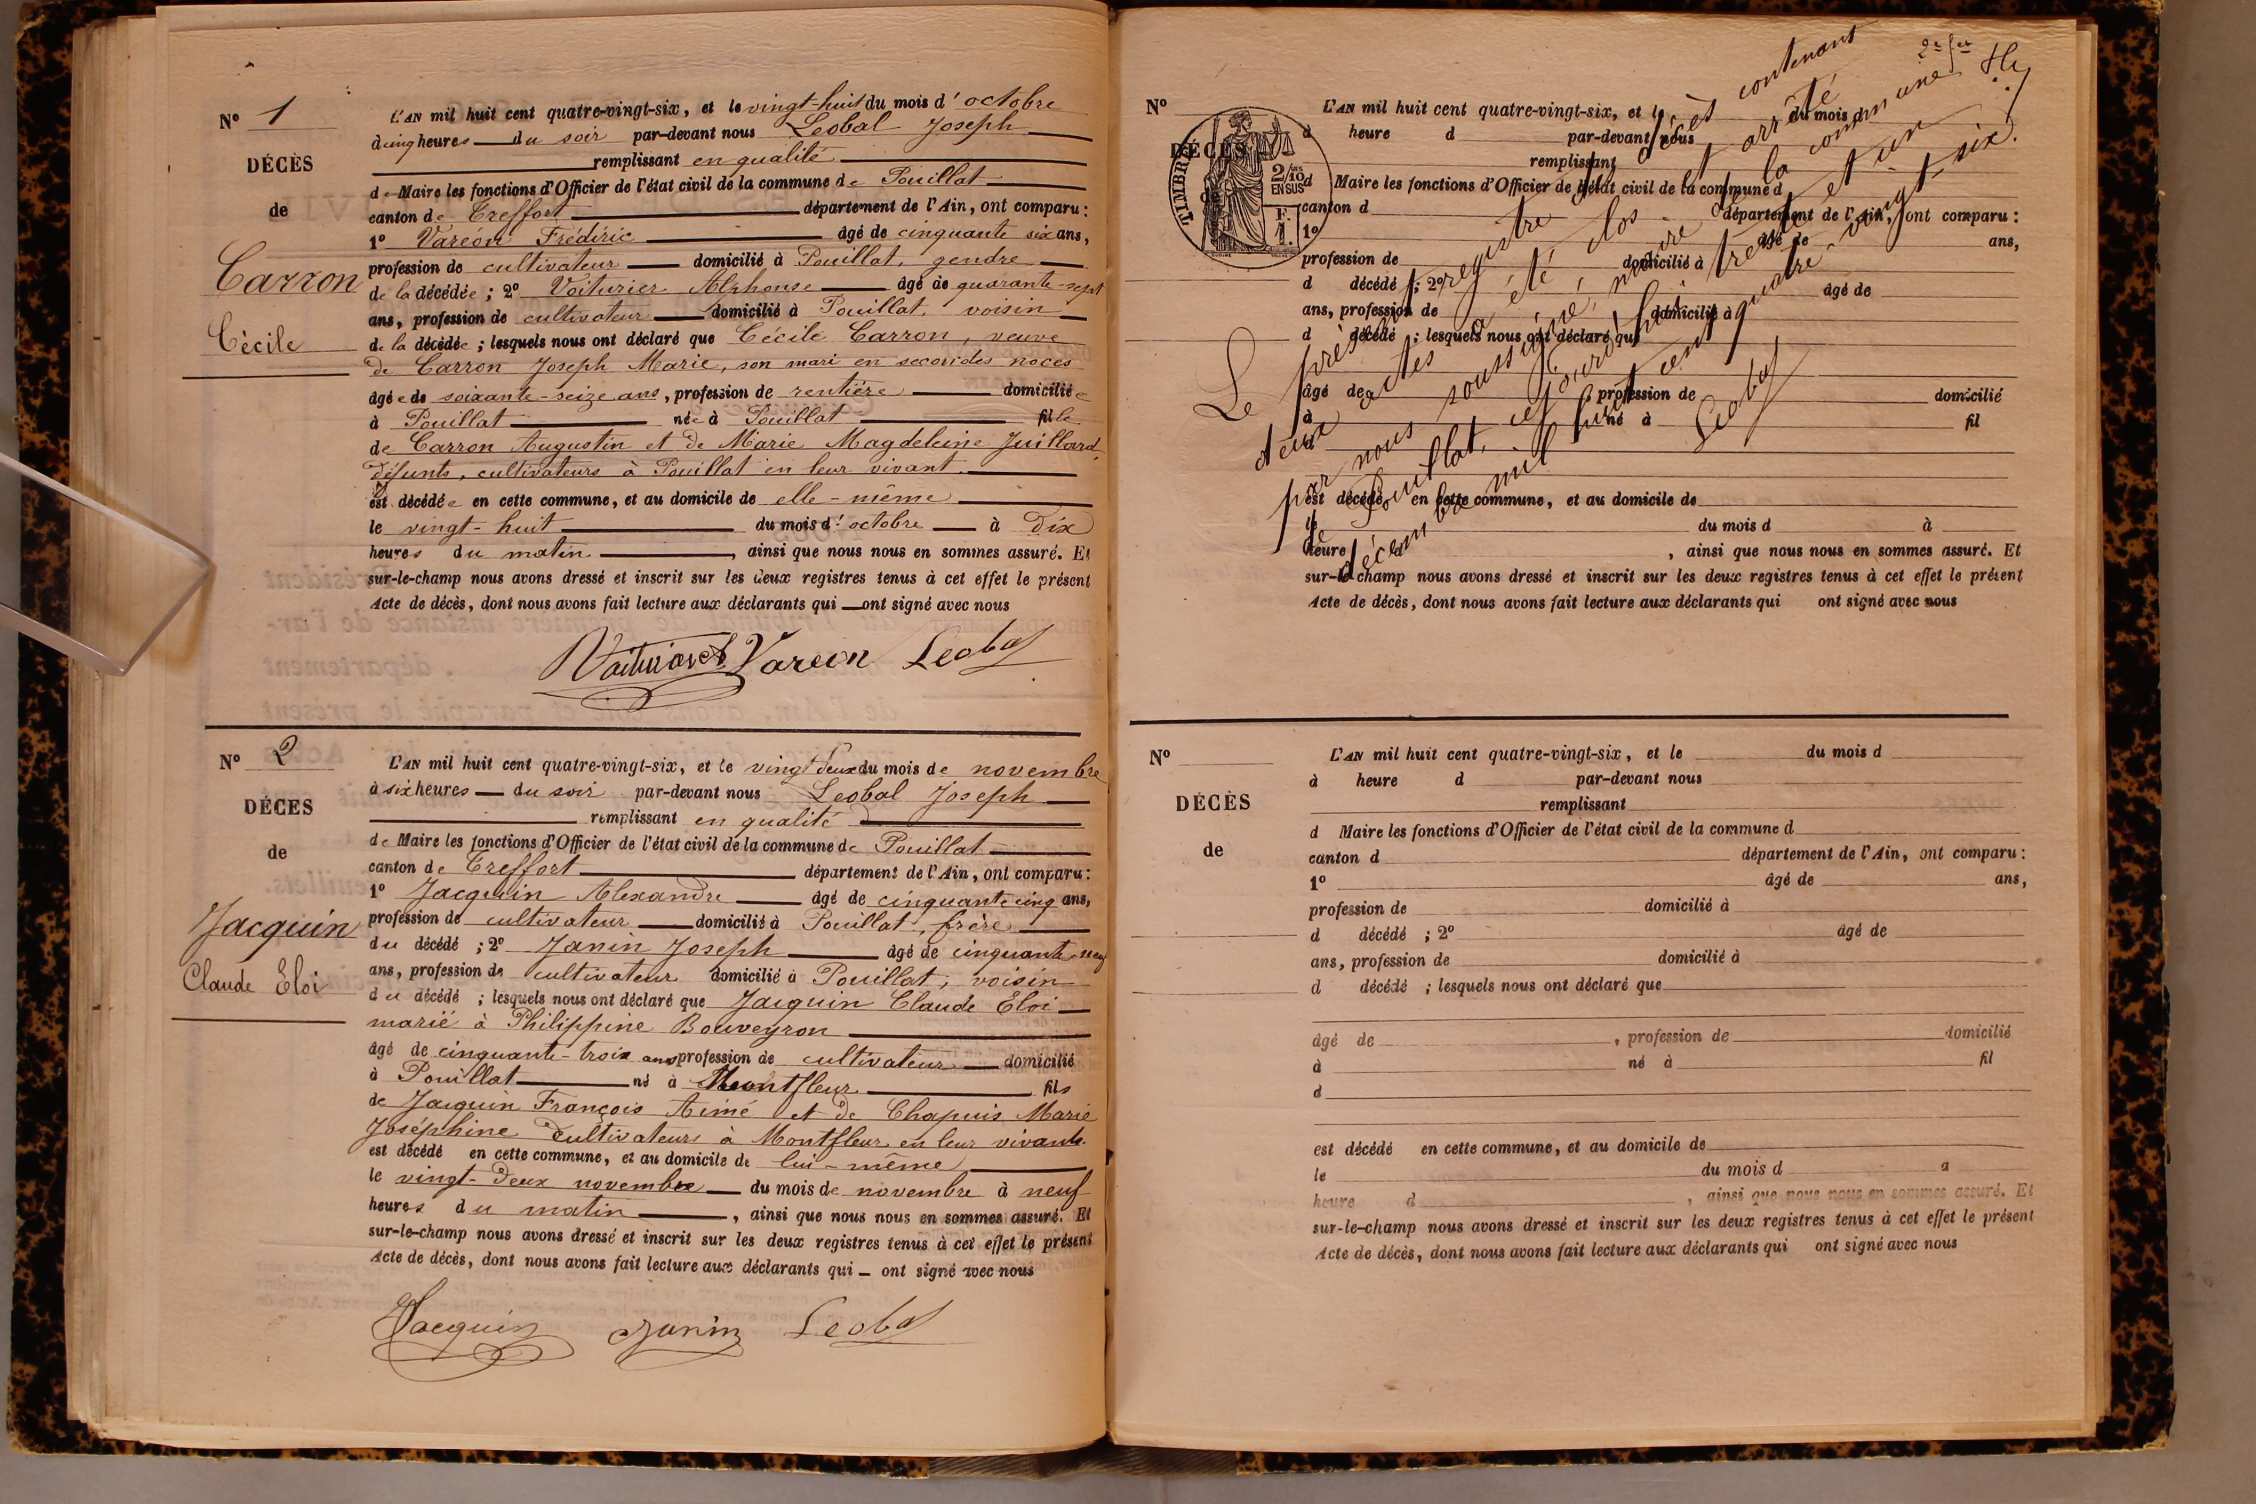 N° 1
DÉCÈS
de
Carron
Cécile
L'AN mil huit cent quatre-vingt-six, et le vingt-huit du mois d'octobre
à cinq heures du soir par-devant nous Leobal Joseph
remplissant en qualité
de Maire les fonctions d'Officier de l'état civil de la commune de Pouillat
canton de Treffort département de l'Ain, ont comparu :
1° Varéon Frédéric âgé de cinquante six ans,
profession de cultivateur domicilié à Pouillat, gendre
de la décédée ; 2° Voiturier Alphonse âgé de quarante-sept
ans, profession de cultivateur domicilié à Pouillat, voisin
de la décédée ; lesquels nous ont déclaré que Cécile Carron, veuve
de Carron Joseph Marie, son mari en secondes noces
âgée de soixante-seize ans, profession de rentière domiciliée
à Pouillat née à Pouillat fille
de Carron Augustin et de Marie Magdeleine Juillard,
défunts, cultivateurs à Pouillat en leur vivant
est décédée en cette commune, et au domicile de elle-même
le vingt-huit du mois d'octobre à dix
heures du matin, ainsi que nous nous en sommes assuré. Et
sur-le-champ nous avons dressé et inscrit sur les deux registres tenus à cet effet le présent
Acte de décès, dont nous avons fait lecture aux déclarants qui ont signé avec nous
Voiturier A. Vareon Leobal
N° 2
DÉCÈS
de
Jacquin
Claude Eloi
L'AN mil huit cent quatre-vingt-six, et le vingt deux du mois de novembre
à six heures du soir par-devant nous Leobal Joseph
remplissant en qualité
de Maire les fonctions d'Officier de l'état civil de la commune de Pouillat
canton de Treffort département de l'Ain, ont comparu :
1° Jacquin Alexandre âgé de cinquante cinq ans,
profession de cultivateur domicilié à Pouillat, frère
du décédé ; 2° Janin Joseph âgé de cinquante-neuf
ans, profession de cultivateur domicilié à Pouillat, voisin
du décédé ; lesquels nous ont déclaré que Jacquin Claude Eloi
marié à Philippine Bouveyron
âgé de cinquante-trois ans profession de cultivateur domicilié
à Pouillat né à Montfleur fils
de Jacquin François Aimé et de Chapuis Marie
Joséphine cultivateurs à Montfleur en leur vivant
est décédé en cette commune, et au domicile de lui-même
le vingt-deux novembre du mois de novembre à neuf
heures du matin, ainsi que nous nous en sommes assuré. Et
sur-le-champ nous avons dressé et inscrit sur les deux registres tenus à cet effet le présent
Acte de décès, dont nous avons fait lecture aux déclarants qui ont signé avec nous
Jacquin Janin Leobal
2e fet
N°
DÉCÈS
de
TIMBRE
2/10
EN SUS
L'AN mil huit cent quatre-vingt-six, et le du mois d
à heure d par-devant nous
remplissant
d Maire les fonctions d'Officier de l'état civil de la commune d
canton d département de l'Ain, ont comparu :
1° âgé de ans,
profession de domicilié à
d décédé ; 2° âgé de
ans, profession de domicilié à
d décédé ; lesquels nous ont déclaré que
âgé de , profession de domicilié
à né à fil
d
est décédé en cette commune, et au domicile de
le du mois d à
heure d , ainsi que nous nous en sommes assuré. Et
sur-le-champ nous avons dressé et inscrit sur les deux registres tenus à cet effet le présent
Acte de décès, dont nous avons fait lecture aux déclarants qui ont signé avec nous
Le présent registre de décès contenant
deux actes a été clos et arrêté
par nous soussigné, maire de la commune
de Pouillat, cejourd'hui trente et un
décembre mil huit cent quatre-vingt-six.
Leobal
N°
DÉCÈS
de
L'AN mil huit cent quatre-vingt-six, et le du mois d
à heure d par-devant nous
remplissant
d Maire les fonctions d'Officier de l'état civil de la commune d
canton d département de l'Ain, ont comparu :
1° âgé de ans,
profession de domicilié à
d décédé ; 2° âgé de
ans, profession de domicilié à
d décédé ; lesquels nous ont déclaré que
âgé de , profession de domicilié
à né à fil
d
est décédé en cette commune, et au domicile de
le du mois d à
heure d , ainsi que nous nous en sommes assuré. Et
sur-le-champ nous avons dressé et inscrit sur les deux registres tenus à cet effet le présent
Acte de décès, dont nous avons fait lecture aux déclarants qui ont signé avec nous